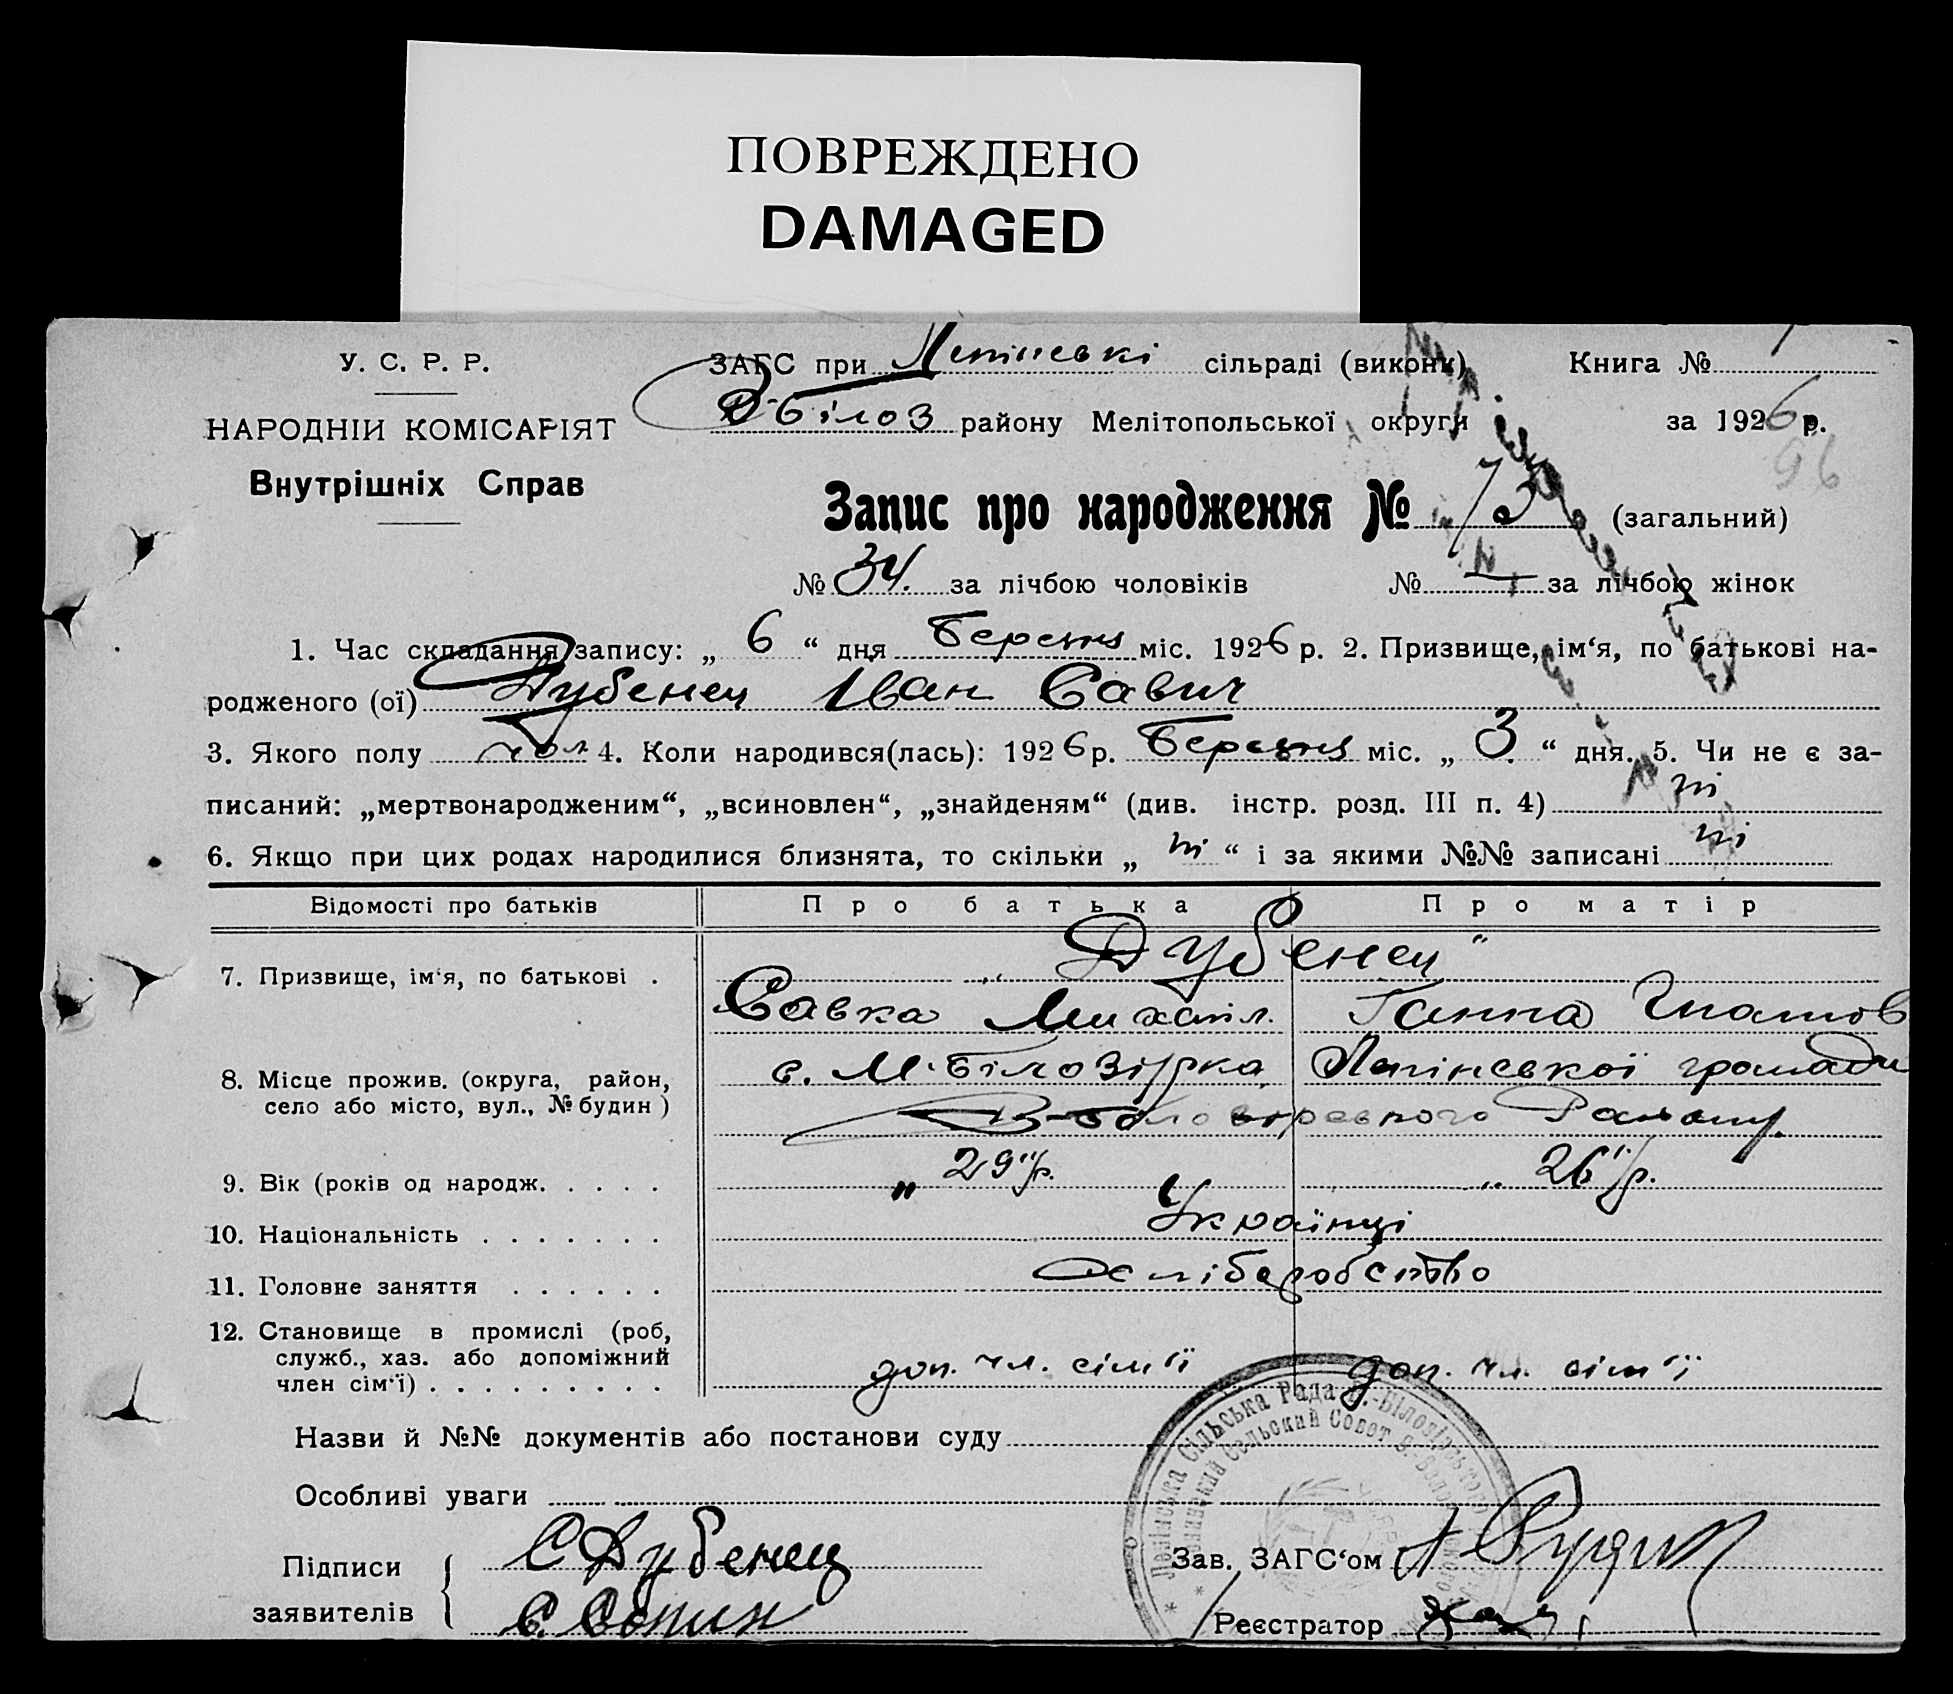 ПОВРЕЖДЕНО
DAMAGED
У. С. Р. Р.
ЗАГС при сільраді (виконк) Книга № 1
НАРОДНІЙ КОМІСАРІЯТ
В-Білоз району Мелітопольської округи за 1926 р.
96
Внутрішніх Справ
Запис про народження № (загальний)
№ 34. за лічбою чоловіків № — за лічбою жінок
1. Час складання запису: „ 6 “ дня Березня міс. 1926 р. 2. Призвище, ім‘я, по батькові на-
родженого (ої) Дубенец Іван Савич
3. Якого полу чол 4. Коли народився(лась): 1926 р. Березня міс. „ 3. “ дня. 5. Чи не є за-
писаний: „мертвонародженим“, „всиновлен“, „знайденям“ (див. інстр. розд. III п. 4) ні
6. Якщо при цих родах народилися близнята, то скільки „ ні “ і за якими №№ записані ні
Відомості про батьків Про батька Про матір
7. Призвище, ім‘я, по батькові . „ Дубенец “
Савка Михайл. Ганна Гнатов
8. Місце прожив. (округа, район, с. М. Білозірка Лепінської громади
село або місто, вул., № будин ) В-Білозірського Району.
9. Вік (років од народж. . . . . „ 29 р. „ 26 р.
10. Національність . . . . . . . Українці
11. Головне заняття . . . . . . Хліборобство
12. Становище в промислі (роб,
служб., хаз. або допоміжний
член сім‘ї) . . . . . . . . . доп. чл. сім‘ї доп. чл. сім‘ї
Назви й №№ документів або постанови суду
Особливі уваги
Підписи С Дубенец Зав. ЗАГС‘ом
заявителів Реєстратор
Сільська Рада В.-Білозірського
Сельский Совет